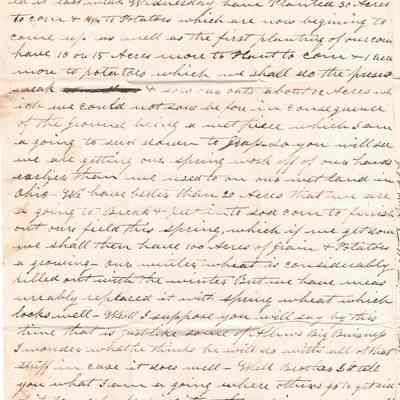 ed it last week Wednesday have Planted 30 Acres
to corn & 4 to Potatoes which are now begining to
come up as well as the first planting of our corn
have 10 or 15 Acres more to Plant to corn & 1 Acre
more to potatoes which we shall do the present
week & sow oats about 12 Acres wh
ich we could not sow before in consequence
of the ground being a wet piece which I am
a going to seed down to grass so you will see
we are getting our spring work off of our hands
earlier than we used to on our wet land in
Ohio - We have better than 20 Acres that we are
a going to Break & put into sod corn to finish
out our field this spring, which if we get sown
we shall then have 100 Acres of grain & Potatoes
a growing - our winter wheat is considerably
killed out with the winter But we have
replaced it with spring wheat which
looks well - Well I suppose you will say by this
time that is just like some of Big Buisness
I wonder what he thinks he will do with all of that
stuff in case it does well - Well Brother I tell
you what I am a going where others go to get rid